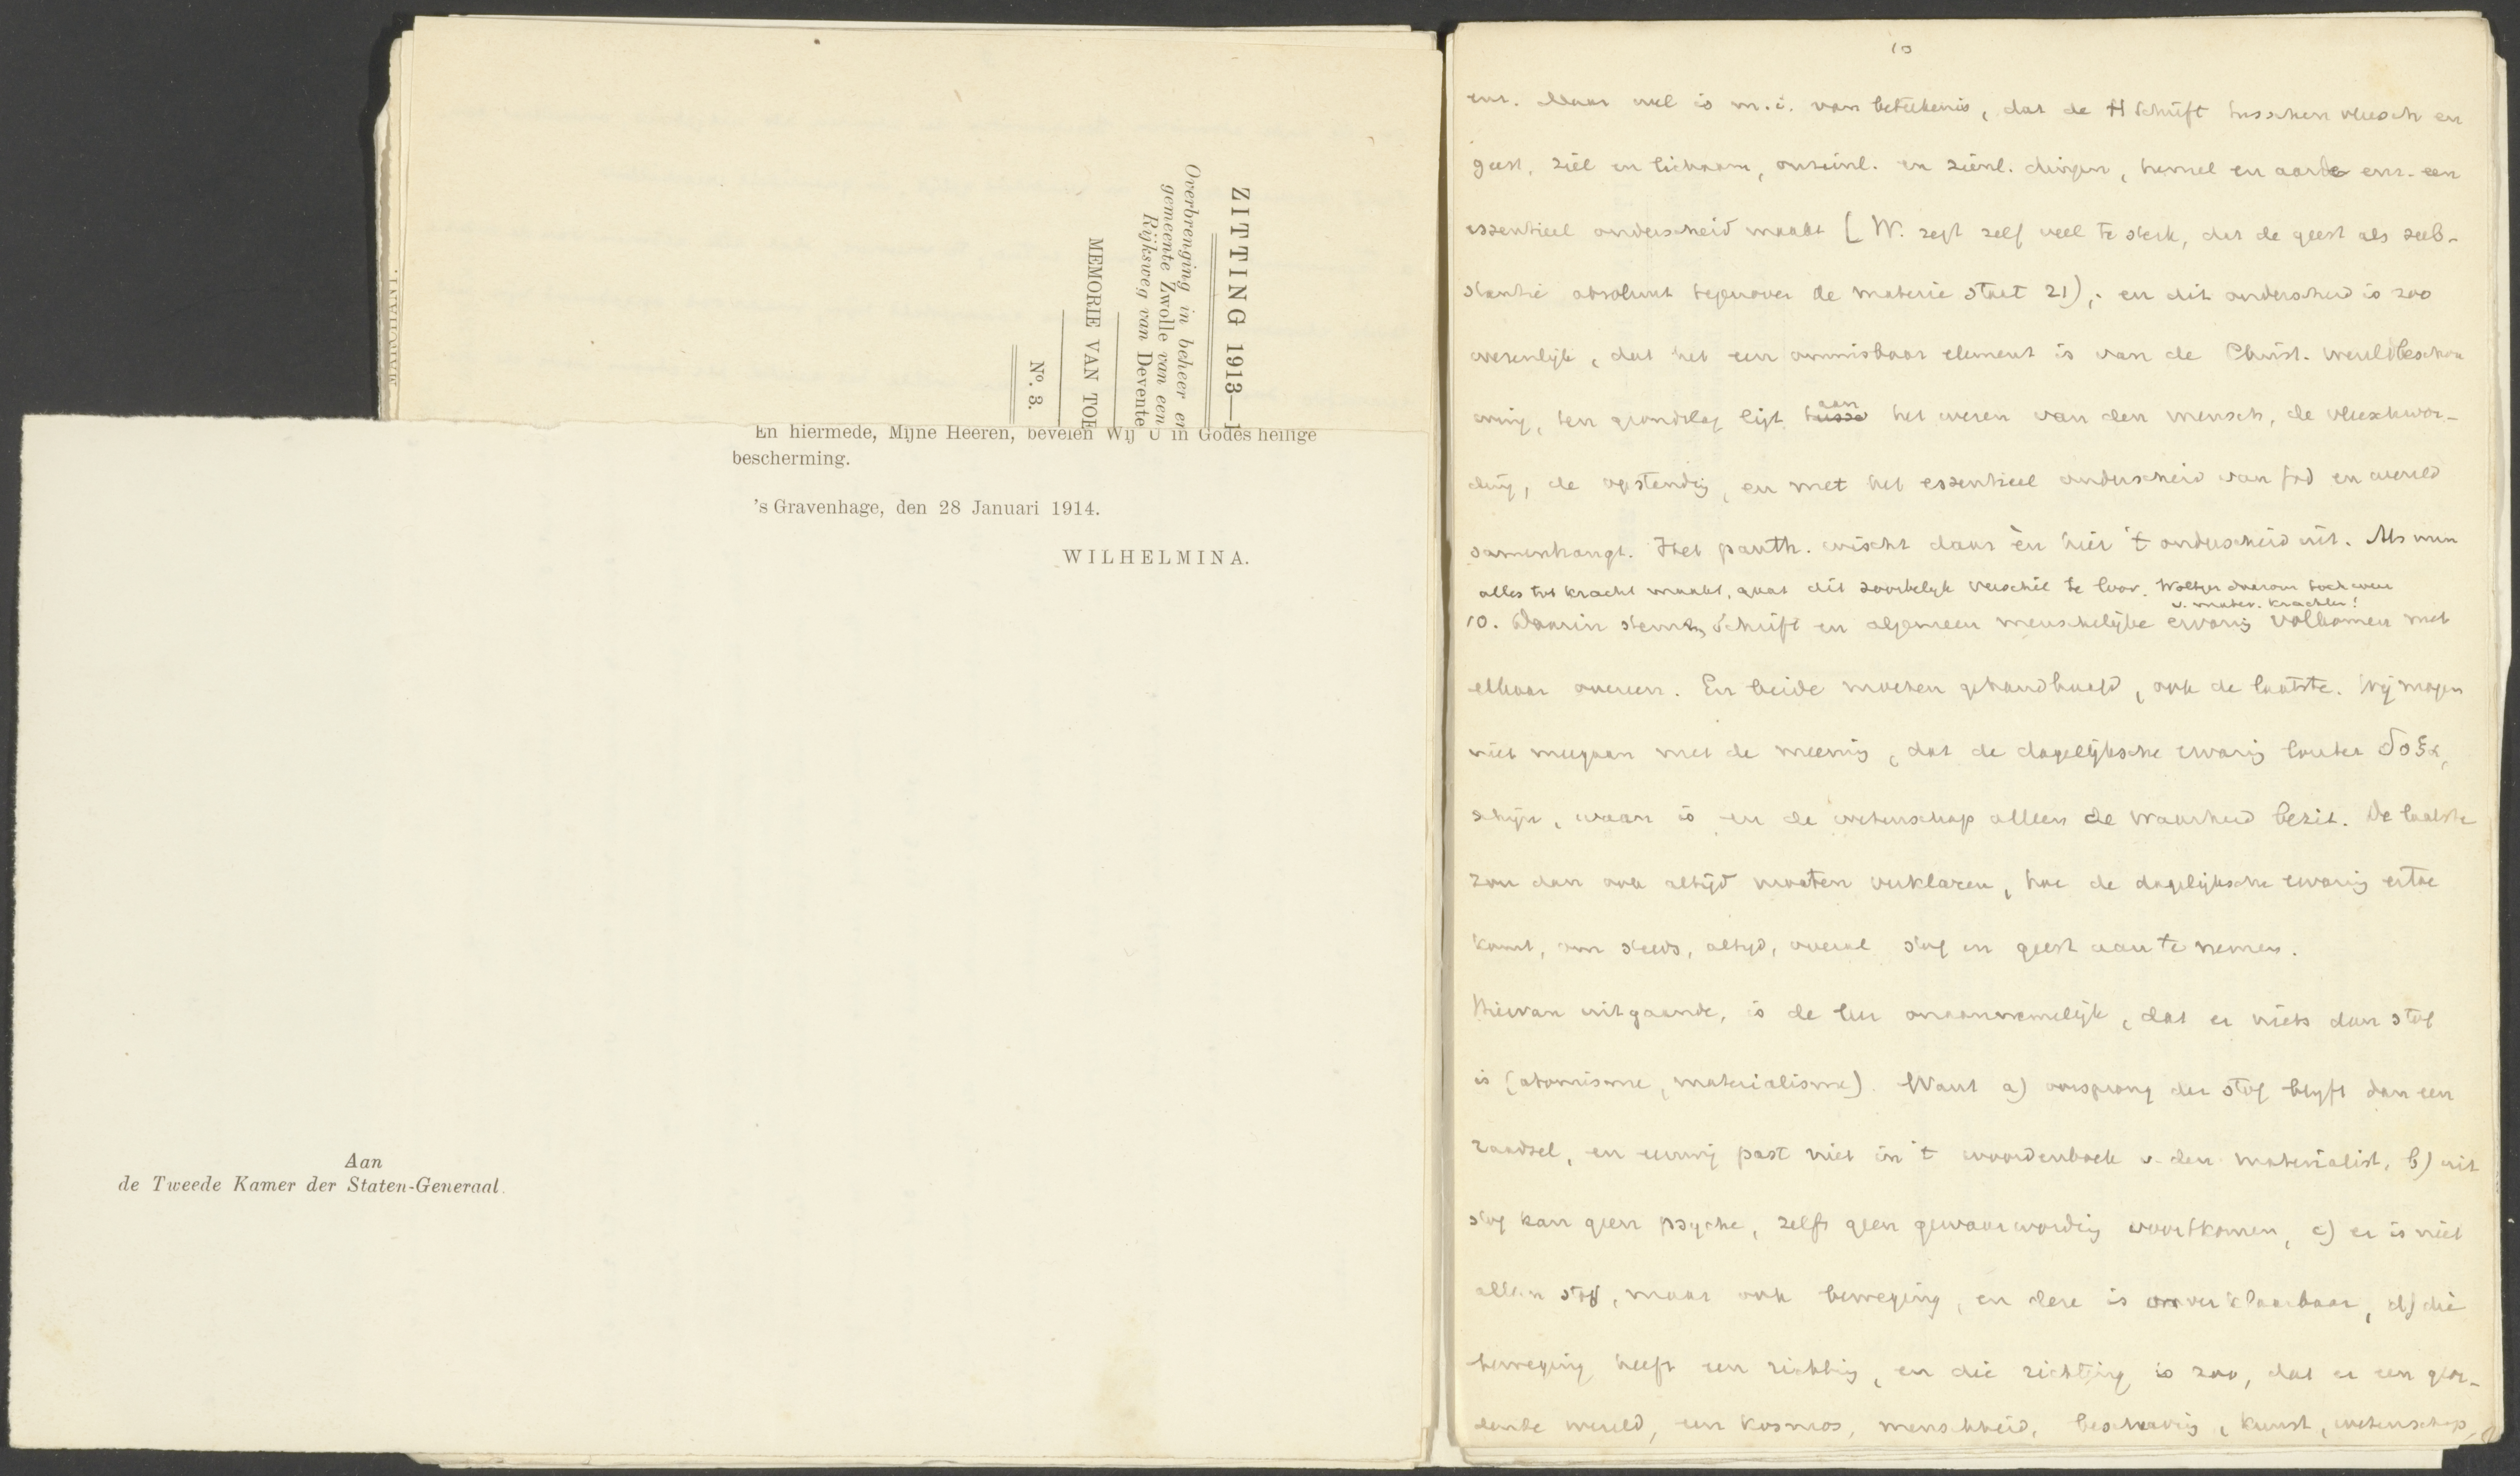 ZITTING 1913—1
Overbrenging in beheer en
gemeente Zwolle van een
Rijksweg van Devente
MEMORIE VAN TOE
No. 3.
MARCHANT.
En hiermede, Mijne Heeren, bevelen Wij U in Godes heilige
bescherming.
's Gravenhage, den 28 Januari 1914.
WILHELMINA.
Aan
de Tweede Kamer der Staten-Generaal.
10
enz. Maar wel is m.i. van beteekenis, dat de H Schrift tusschen vleesch en
geest, ziel en lichaam, onzienl. en zienl. dingen, hemel en aarde enz. een
essentieel onderscheid maakt (W. zegt zelf veel te sterk, dat de geest als zelf-
stantie absoluut tegenover de materie staat 21); en dit onderscheid is zoo
wezenlijk, dat het een onmisbaar element is van de Christ. wereldbeschou
wing, ten grondslag ligt aan het wezen van den mensch, de vleeschwor-
ding, de opstanding, en met het essentieel onderscheid van God en wereld
samenhangt. Het panth. wischt daar èn hier 't onderscheid uit. Als men
alles tot kracht maakt, gaat dit zoortelijk verschil te loor. Woltjer daarom toch weer
v. mater. krachten!
10. Daarin stemt Schrift en algemeen menschelijke ervaring volkomen met
elkaar overeen. En beide moeten gehandhaafd, ook de laatste. Wij mogen
niet meegaan met de meening, dat de dagelijksche ervaring louter δοξα,
schijn, waan is en de wetenschap alleen de waarheid bezit. De laatste
zou dan ook altijd moeten verklaren, hoe de dagelijksche ervaring ertoe
komt, om steeds, altijd, overal stof en geest aan te nemen.
Hiervan uitgaande, is de leer onaannemelijk, dat er niets dan stof
is (atomisme, materialisme). Want a) oorsprong der stof blijft dan een
raadsel, en eeuwig past niet in 't woordenboek v. den materialist, b) uit
stof kan geen psyche, zelfs geen gewaarwording voortkomen, c) er is niet
alleen stof, maar ook beweging, en deze is onverklaarbaar, d) die
beweging heeft een richting, en die richting is zoo, dat er een geor-
dende wereld, een kosmos, menschheid, beschaving, kunst, wetenschap,